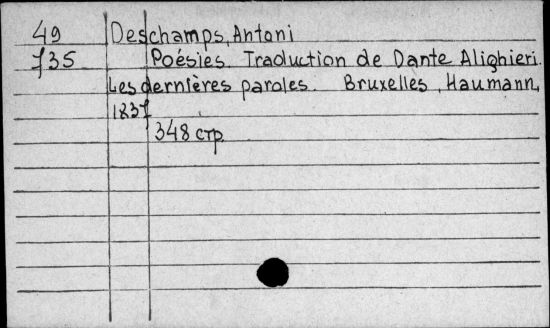 49 Deschamps, Antoni
735 Poésies. Traduction de Dante Alighieri.
Les dernières paroles. Bruxelles, Haumann,
1837
348 стр.